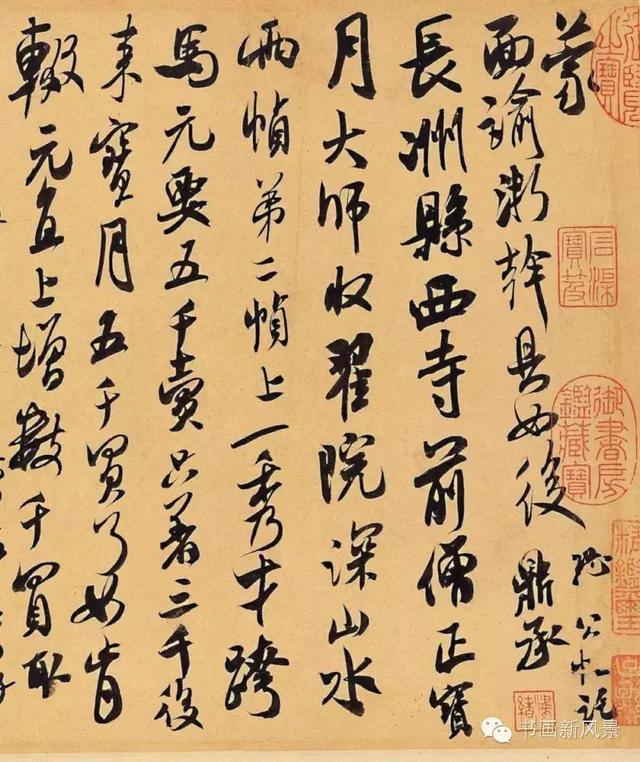 蒙
面諭浙幹具如後 鼎承
長洲縣西寺前僧正寶
月大師收翟院深山水
兩幀第二幀上一秀才跨
馬元要五千賣只著三千後
來寶月五千買了如肯
輟元直上增數千買取
御書房鑑藏寶
书画新风景